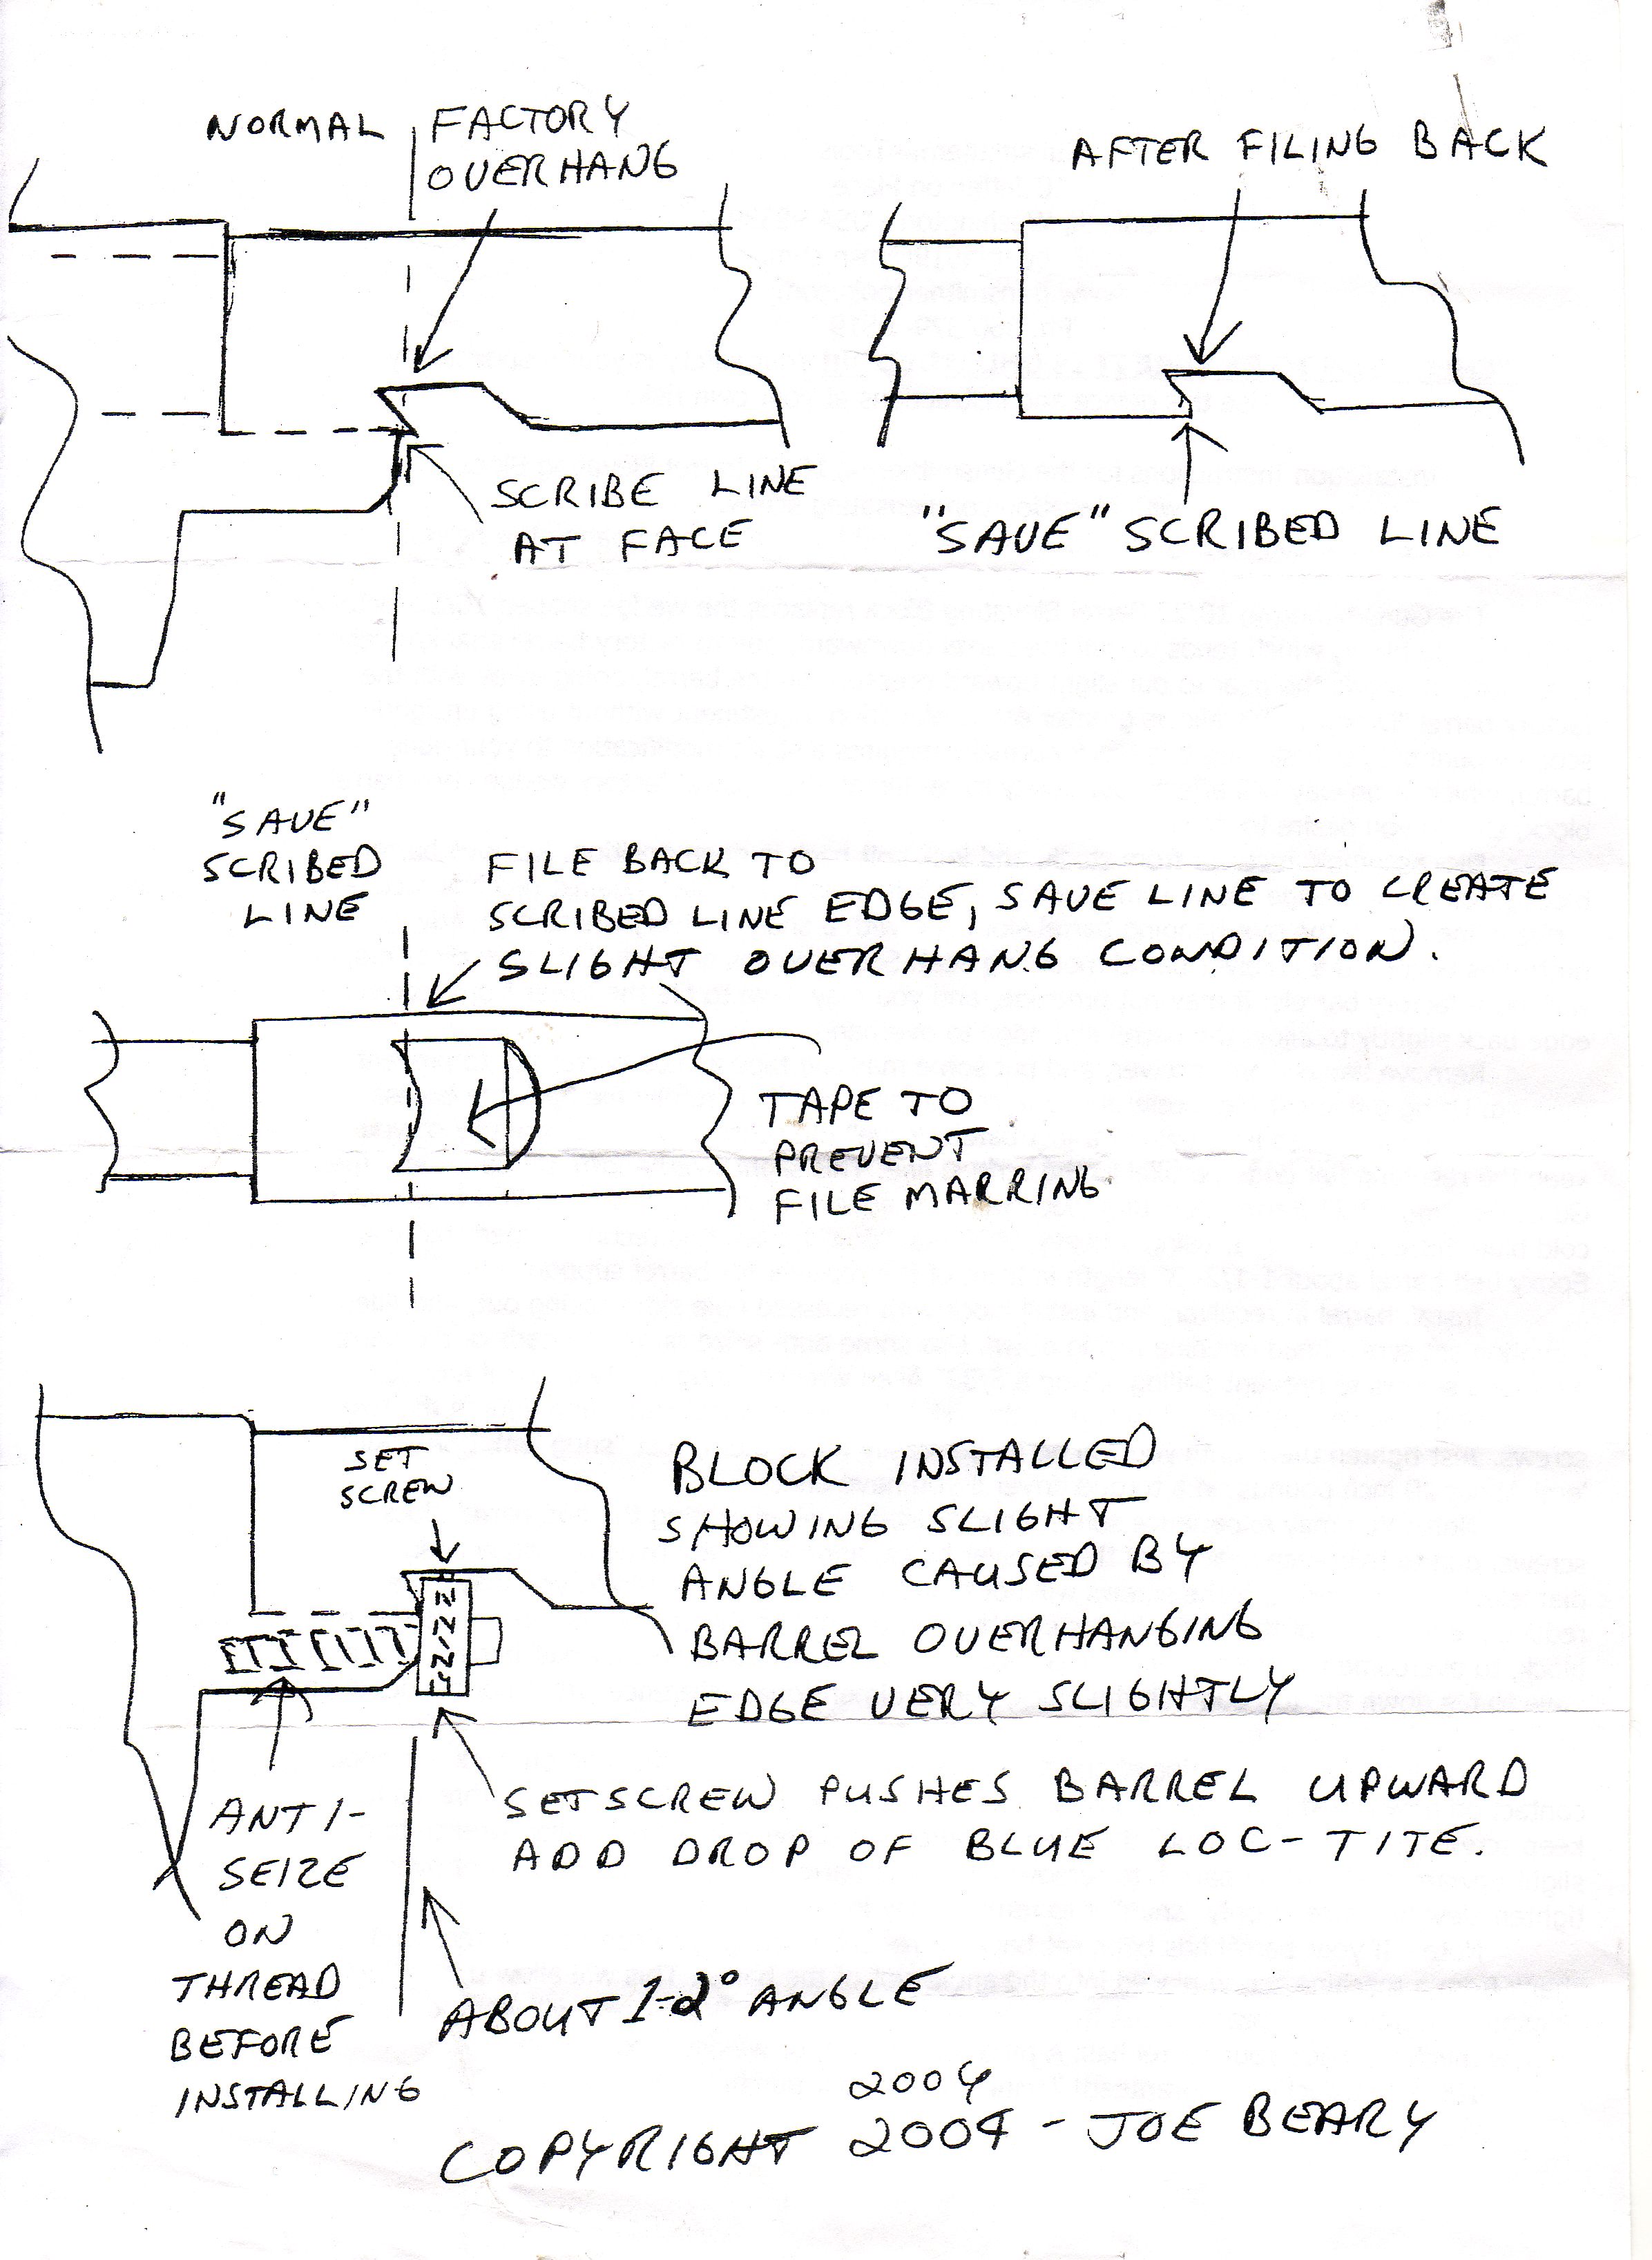 NORMAL FACTORY
OVERHANG
AFTER FILING BACK
SCRIBE LINE
AT FACE
"SAVE" SCRIBED LINE
"SAVE"
SCRIBED
LINE
FILE BACK TO
SCRIBED LINE EDGE, SAVE LINE TO CREATE
SLIGHT OVERHANG CONDITION.
TAPE TO
PREVENT
FILE MARRING
SET
SCREW
BLOCK INSTALLED
SHOWING SLIGHT
ANGLE CAUSED BY
BARREL OVERHANGING
EDGE VERY SLIGHTLY
SETSCREW PUSHES BARREL UPWARD
ADD DROP OF BLUE LOC-TITE.
ANTI-
SEIZE
ON
THREAD
BEFORE
INSTALLING
ABOUT 1-2° ANGLE
2004
COPYRIGHT 2004 - JOE BEARY